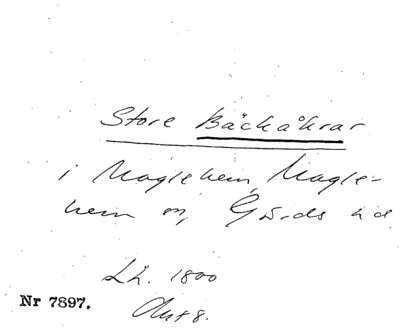 Store Bäckåkrar
i Maglehem, Magle-
hem sn, Gärds hd
LL. 1800
Akt 8.
Nr 7897.